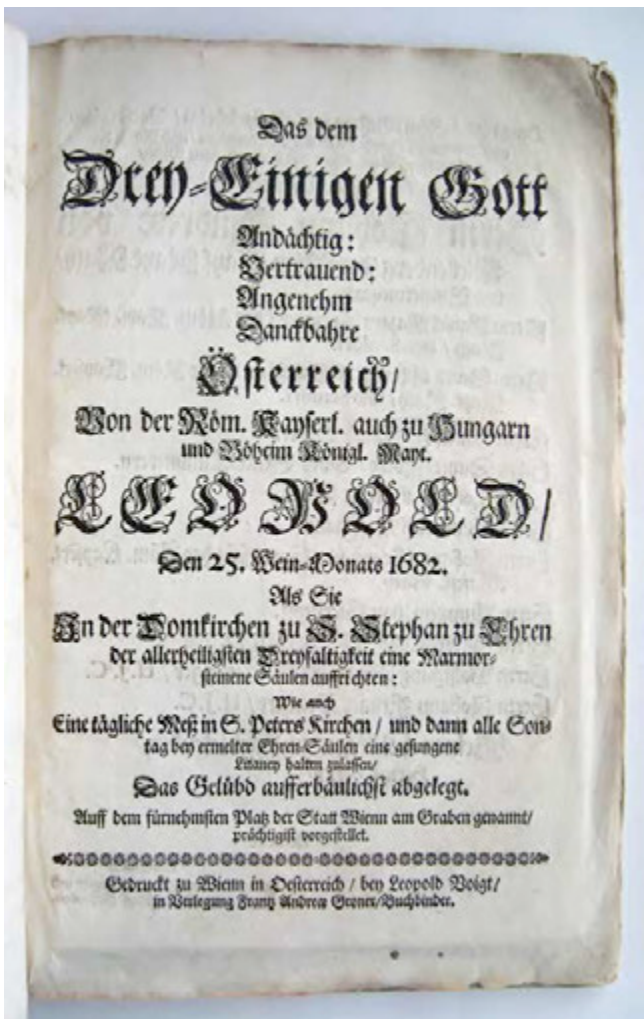 Das dem
Drey-Einigen Gott
Andächtig:
Vertrauend:
Angenehm
Danckbahre
Österreich/
Von der Röm. Kayserl. auch zu Hungarn
und Böheim Königl. Mayt.
LEOPOLD/
Den 25. Wein-Monats 1682.
Als Sie
In der Domkirchen zu S. Stephan zu Ehren
der allerheiligsten Dreyfaltigkeit eine Marmor-
steinene Säulen auffrichten:
Wie auch
Eine tägliche Meß in S. Peters Kirchen / und dann alle Son-
tag bey ermelter Ehren-Säulen eine gesungene
Litaney halten zulassen/
Das Gelübd aufferbäulichst abgelegt.
Auff dem fürnehmsten Platz der Statt Wienn am Graben genannt/
prächtigist vorgestellet.
Gedruckt zu Wienn in Oesterreich / bey Leopold Voigt/
in Verlegung Frantz Andreæ Groner/Buchbinder.